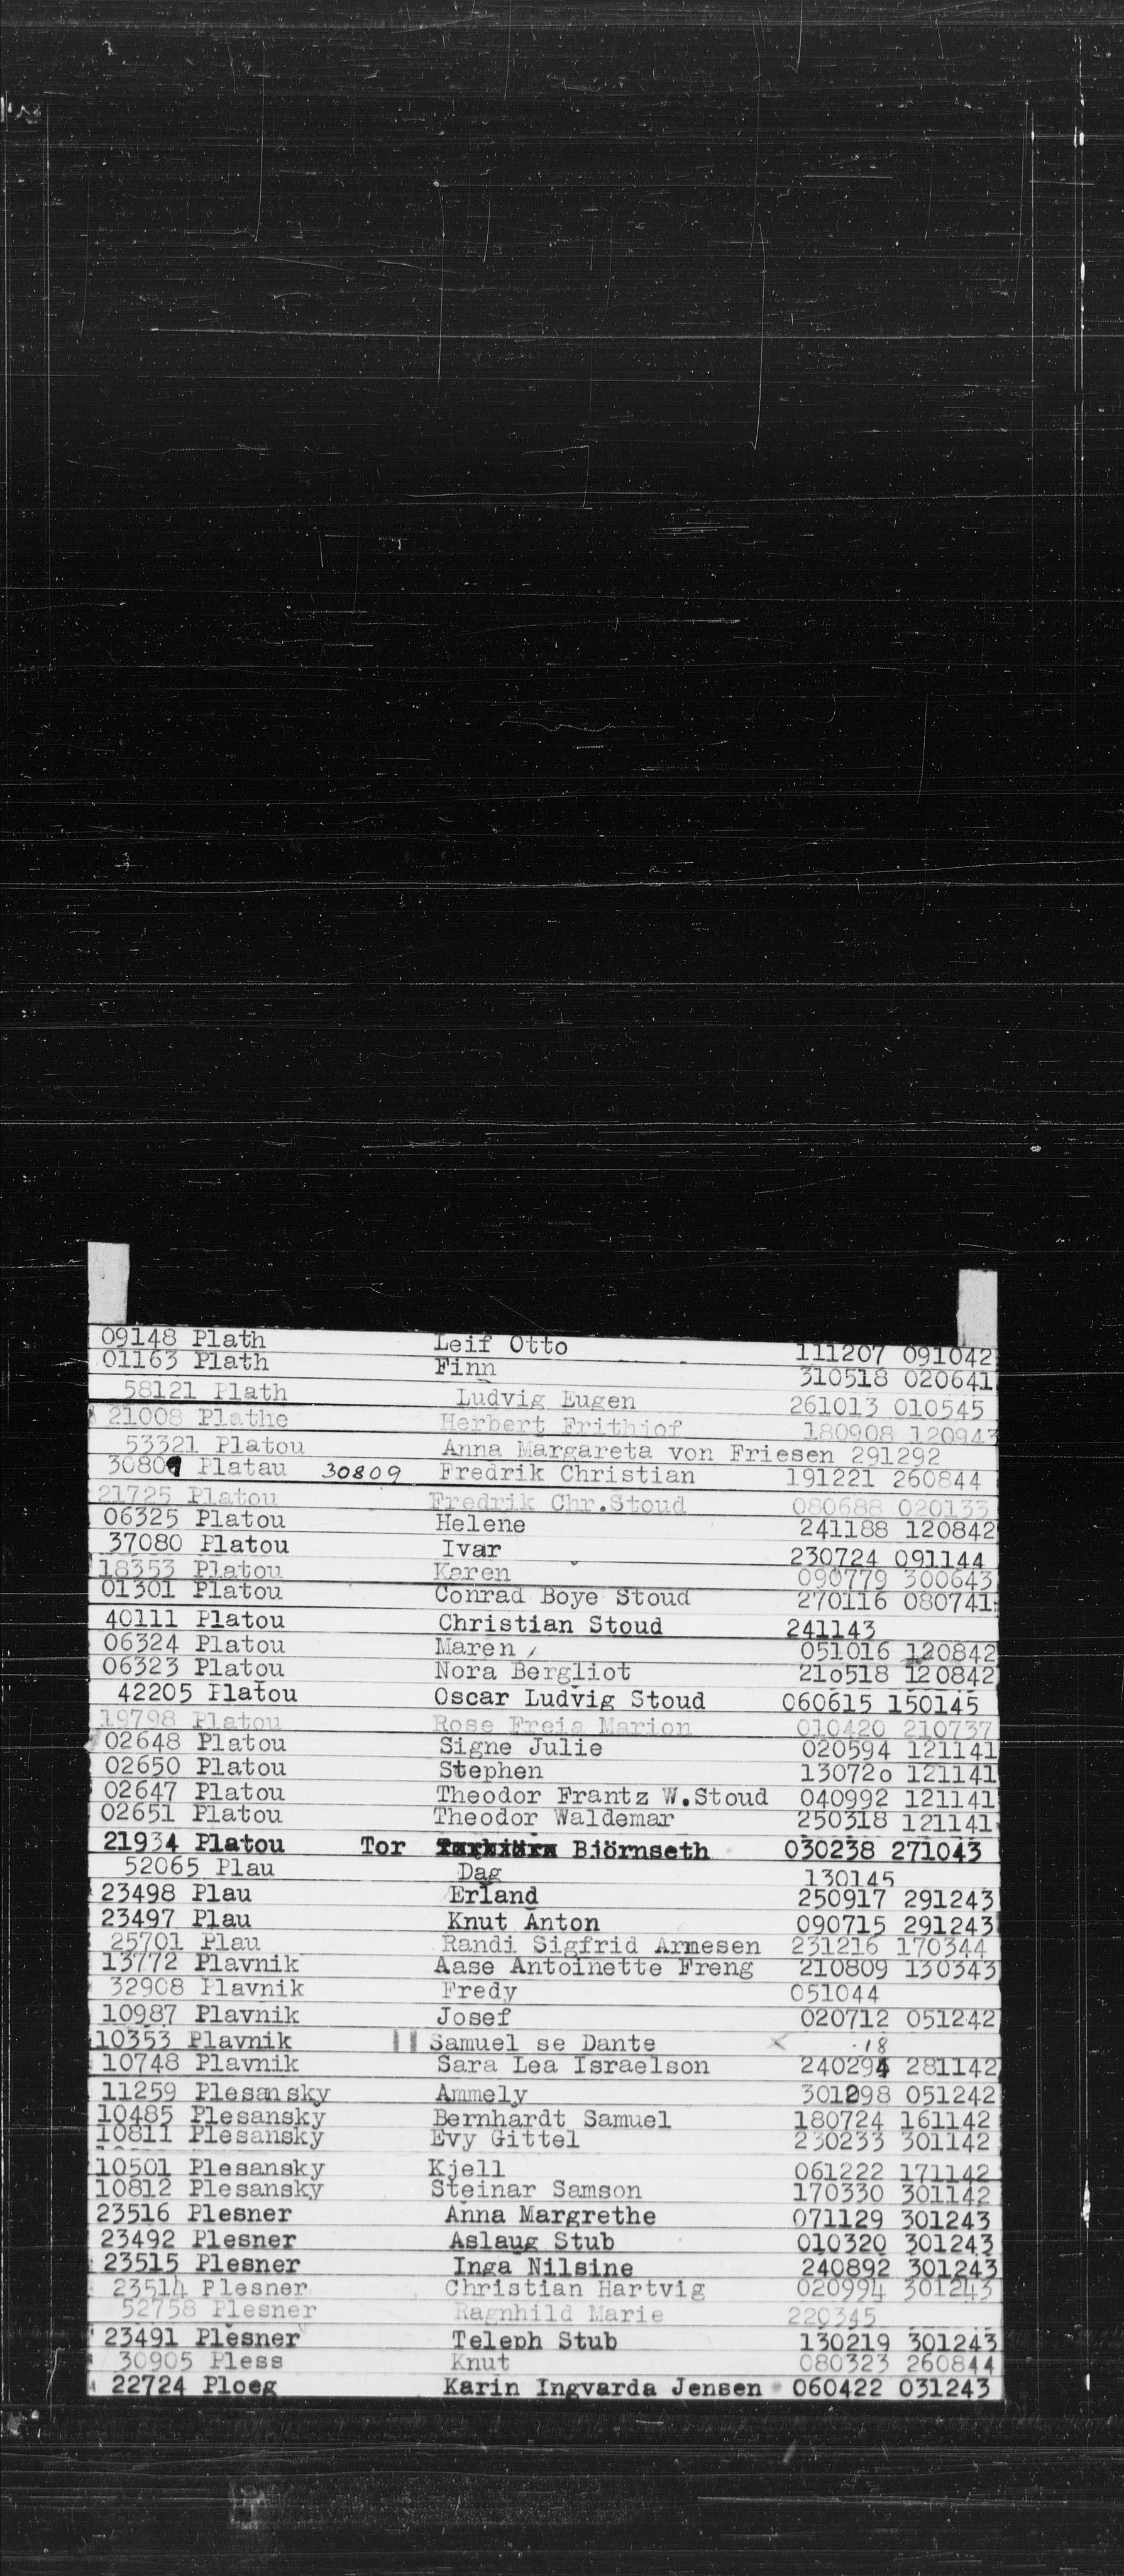 09148 Plath Leif Otto 111207 091042
01163 Plath Finn 310518 020641
58121 Plath Ludvig Eugen 261013 010545
21008 Plathe Herbert Frithjof 180908 120943
53321 Platou Anna Margareta von Friesen 291292
30809 Platau 30809 Fredrik Christian 191221 260844
21725 Platou Fredrik Chr.Stoud 080688 020133
06325 Platou Helene 241188 120842
37080 Platou Ivar 230724 091144
18353 Platou Karen 090779 300643
01301 Platou Conrad Boye Stoud 270116 080741
40111 Platou Christian Stoud 241143
06324 Platou Maren 051016 120842
06323 Platou Nora Bergliot 210518 120842
42205 Platou Oscar Ludvig Stoud 060615 150145
19798 Platou Rose Freia Marion 010420 210737
02648 Platou Signe Julie 020594 121141
02650 Platou Stephen 130720 121141
02647 Platou Theodor Frantz W.Stoud 040992 121141
02651 Platou Theodor Waldemar 250318 121141
21934 Platou Tor Björnseth 030238 271043
52065 Plau Dag 130145
23498 Plau Erland 250917 291243
23497 Plau Knut Anton 090715 291243
25701 Plau Randi Sigfrid Arnesen 231216 170344
13772 Plavnik Aase Antoinette Freng 210809 130343
32908 Plavnik Fredy 051044
10987 Plavnik Josef 020712 051242
10353 Plavnik Samuel se Dante 18
10748 Plavnik Sara Lea Israelson 240294 281142
11259 Plesansky Ammely 301298 051242
10485 Plesansky Bernhardt Samuel 180724 161142
10811 Plesansky Evy Gittel 230233 301142
10501 Plesansky Kjell 061222 171142
10812 Plesansky Steinar Samson 170330 301142
23516 Plesner Anna Margrethe 071129 301243
23492 Plesner Aslaug Stub 010320 301243
23515 Plesner Inga Nilsine 240892 301243
23514 Plesner Christian Hartvig 020994 301243
52758 Plesner Ragnhild Marie 220345
23491 Plesner Teleph Stub 130219 301243
30905 Pless Knut 080323 260844
22724 Ploeg Karin Ingvarda Jensen 060422 031243